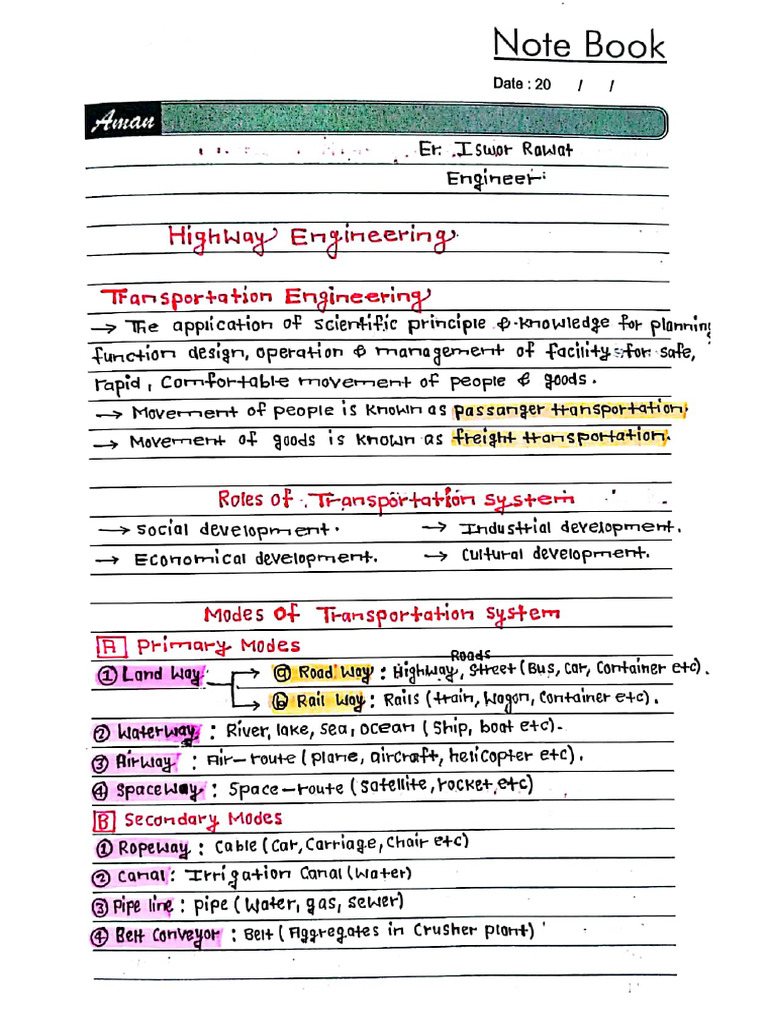 Note Book
Date : 20 / /
Aman
Er. Iswor Rawat
Engineer
Highway Engineering
Transportation Engineering
→ The application of scientific principle & knowledge for planning
function design, operation & management of facility for safe,
rapid, comfortable movement of people & goods.
→ Movement of people is known as passanger transportation.
→ Movement of goods is known as freight transportation.
Roles of Transportation system
→ Social development. → Industrial development.
→ Economical development. → Cultural development.
Modes of Transportation system
A Primary Modes
Roads
① Land Way → ⓐ Road Way : Highway, Street (Bus, Car, Container etc).
→ ⓑ Rail Way : Rails (train, Wagon, Container etc).
② Waterway : River, lake, sea, ocean (Ship, boat etc).
③ Airway : Air-route (plane, aircraft, helicopter etc).
④ Spaceway : Space-route (satellite, rocket, etc)
B Secondary Modes
① Ropeway : Cable (Car, Carriage, Chair etc)
② Canal : Irrigation Canal (Water)
③ Pipe line : pipe (Water, gas, sewer)
④ Belt Conveyor : Belt (Aggregates in Crusher plant)